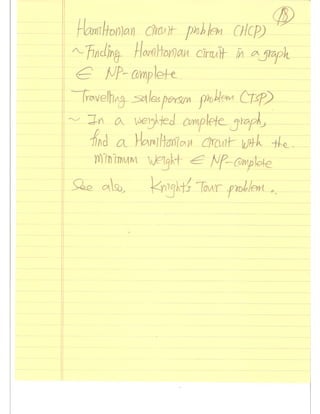 18
Hamiltonian circuit problem (HCP)
~ Finding Hamiltonian circuit in a graph
∈ NP-complete
Travelling salesperson problem (TSP)
~ In a weighted complete graph,
find a Hamiltonian circuit with the
minimum weight ∈ NP-complete
See also, Knight's Tour problem.